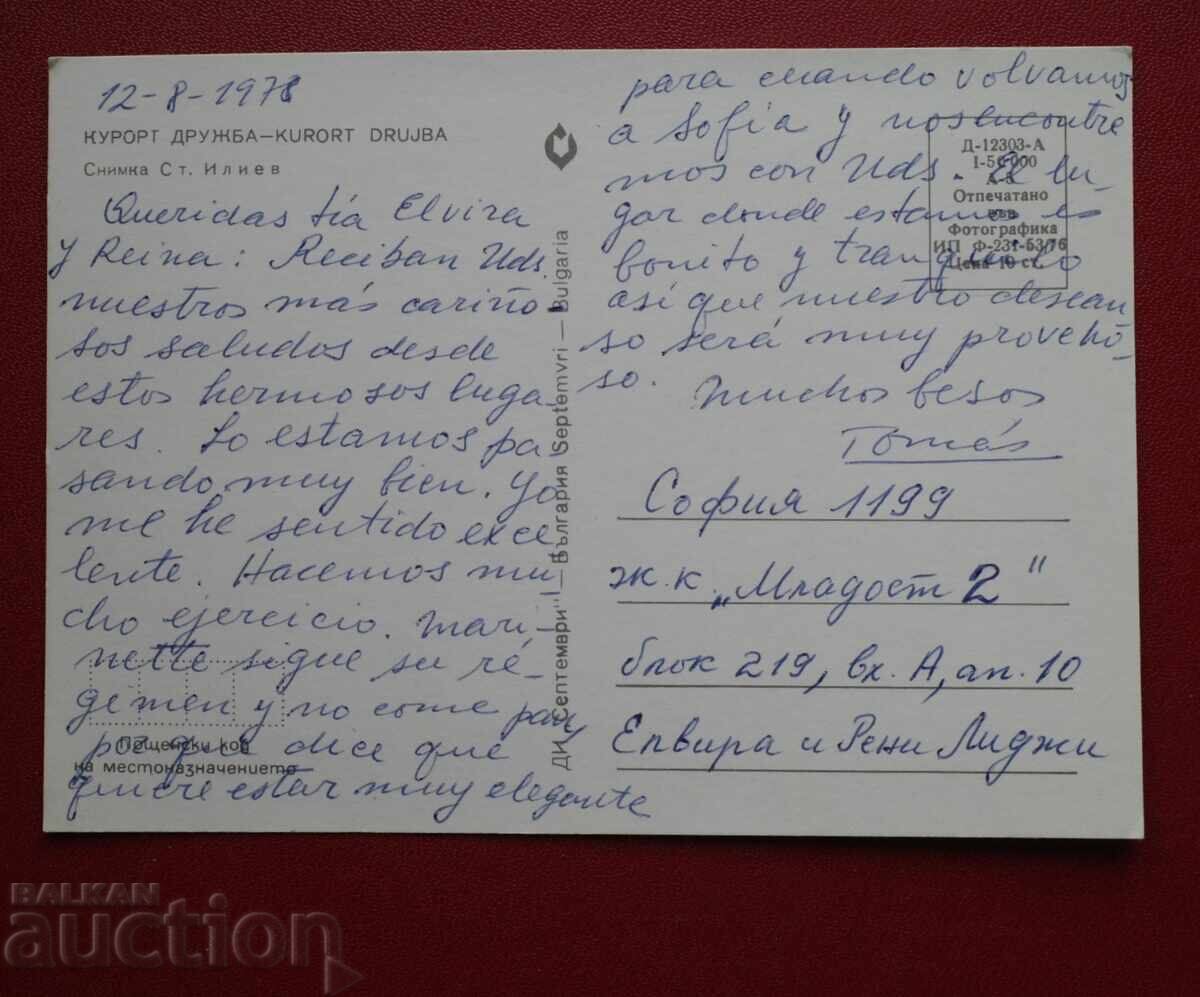 12-8-1978
КУРОРТ ДРУЖБА—KURORT DRUJBA
Снимка Ст. Илиев
Queridas tía Elvira
y Reina: Reciban Uds.
nuestros más cariño-
sos saludos desde
estos hermosos luga-
res. Lo estamos pa
sando muy bien. Yo
me he sentido exce-
lente. Hacemos mu-
cho ejercicio. Mari-
nette sigue su ré-
gemen y no come pan
porque dice que
quiere estar muy elegante
Пощенски код
на местоназначението
ДИ „Септември" — България (Septemvri — Bulgaria
para cuando volvamos
a Sofia y nos encontre
mos con Uds. El lu-
gar donde estamos es
bonito y tranquilo
así que nuestro descan
so será muy provecho-
so.
Muchos besos
Tomás
Д-12303-А
I-56 000
А-6
Отпечатано
във
Фотографика
ИП Ф-231-53/76
Цена 10 ст.
София 1199
ж.к. „Младост 2"
блок 219, вх. А, ап. 10
Елвира и Рени Лиджи
BALKAN
auction